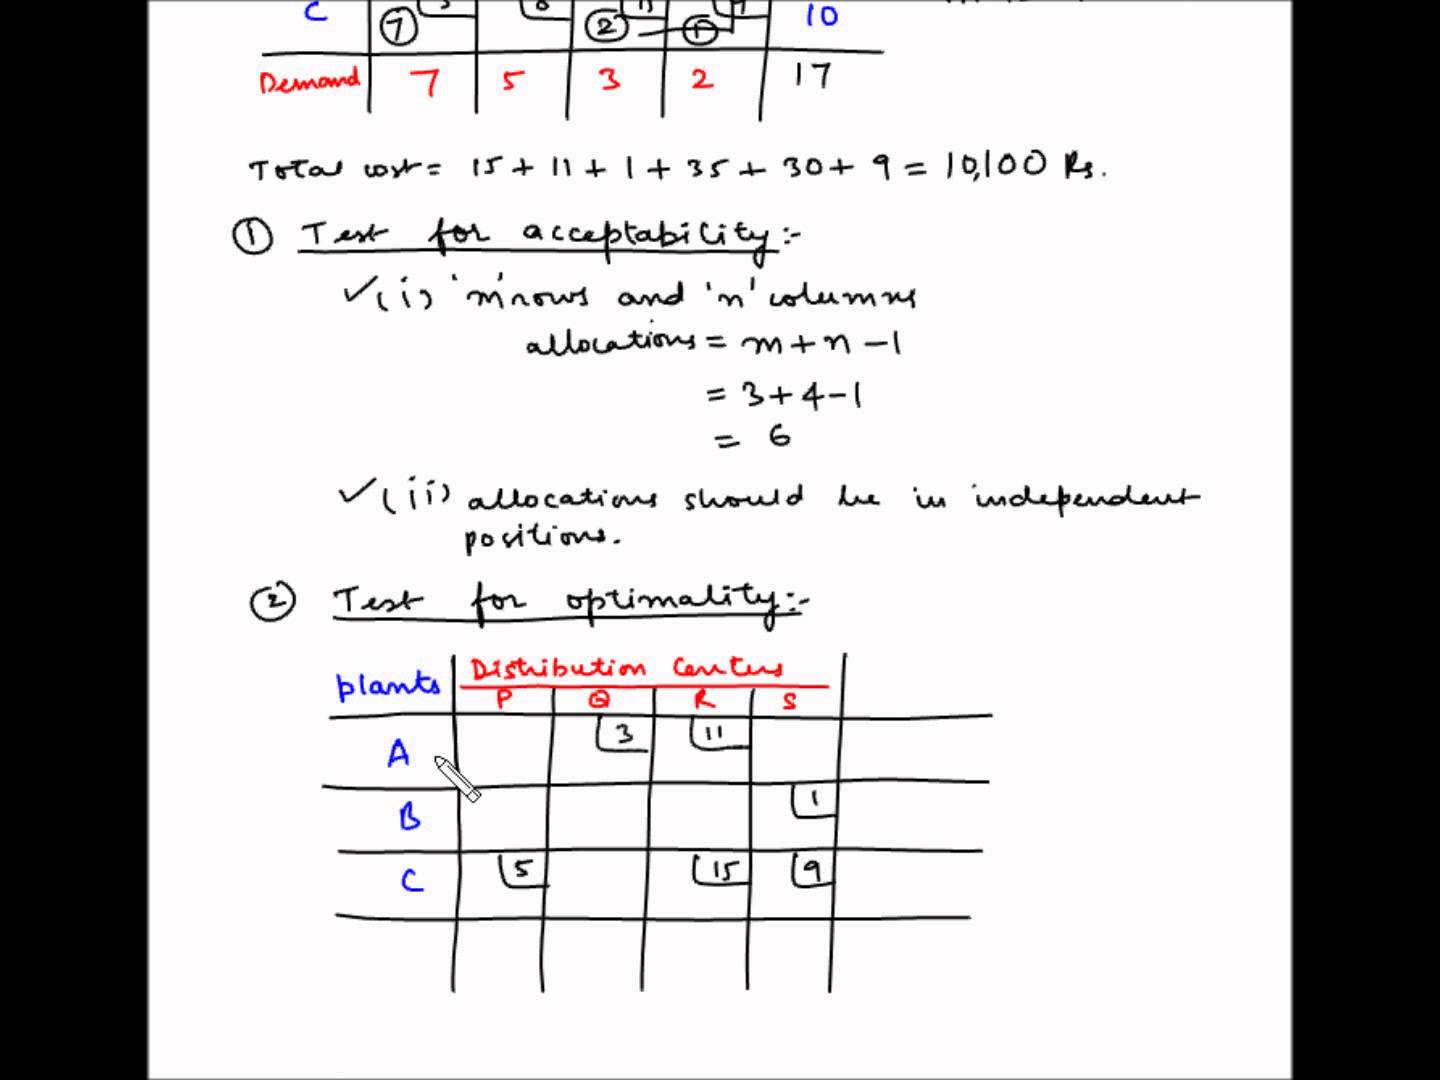 C 7 2 1 10
Demand 7 5 3 2 17
Total cost = 15 + 11 + 1 + 35 + 30 + 9 = 10,100 Rs.
① Test for acceptability:-
✓(i) 'm' rows and 'n' columns
allocations = m + n - 1
= 3 + 4 - 1
= 6
✓(ii) allocations should be in independent
positions.
② Test for optimality:-
plants Distribution Centers
P Q R S
A 3 11
B 1
C 5 15 9